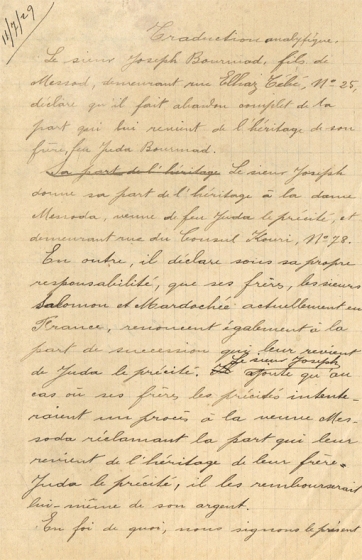 11/7/29
Traduction analytique.
Le sieur Joseph Bourmad, fils de
Messod, demeurant rue Elbaz Tébé, No 25,
déclare qu'il fait abandon complet de la
part qui lui revient de l'héritage de son
frère, feu Juda Bourmad.
Sa part de l'héritage Le sieur Joseph
donne sa part de l'héritage à la dame
Messoda, veuve de feu Juda le précité, et
demeurant rue du Consul Kouri, No 78.
En outre, il déclare sous sa propre
responsabilité, que ses frères, les sieurs
Salomon et Mardochée actuellement en
France, renoncent également à la
part de succession que leur revient
de Juda le précité. Le sieur Joseph ajoute qu'au
cas où ses frères les précités intente-
raient une procès à la veuve Mes-
soda réclamant la part qui leur
revient de l'héritage de leur frère
Juda le précité, il les rembourserait
lui-même de son argent.
En foi de quoi, nous signons le présent